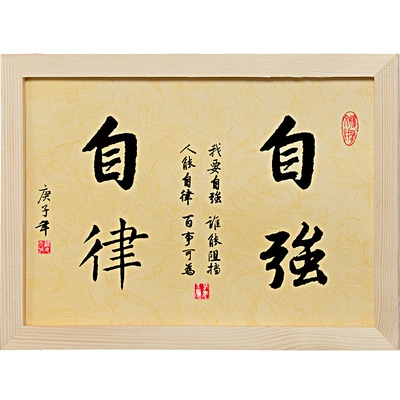 自強
我要自強 誰能阻擋
人能自律 百事可為
自律
庚子年